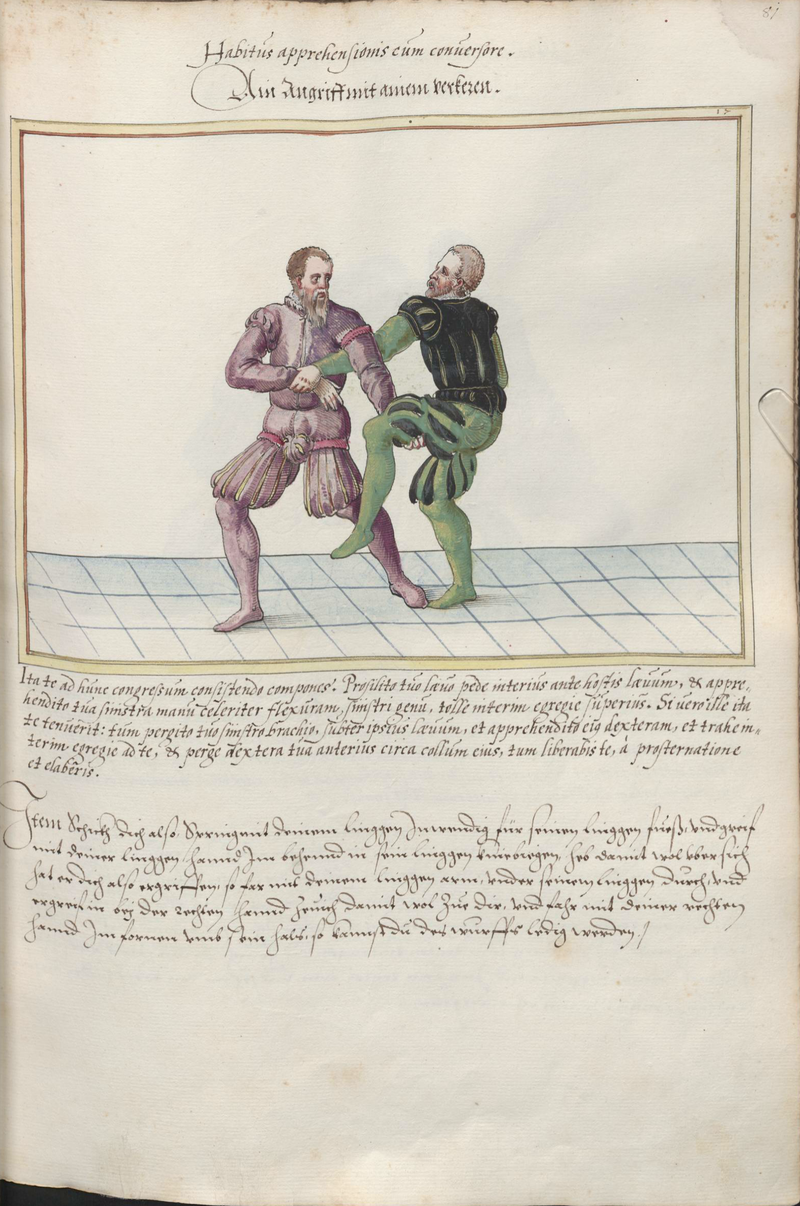 81
Habitus apprehensionis cum conversore.
Ain Angriff mit ainem verkeren.
15
Ita te ad hunc congressum consistendo compones. Prosilito tuo laevo pede interius ante hostis laevum, & appre-
hendito tua sinistra manu celeriter flexuram, sinistri genu, tolle interim egregie superius. Si vero ille ita
te tenuerit: tum pergito tuo sinistro brachio, subter ipsius laevum, et apprehendito eius dexteram, et trahe in-
terim egregie ad te, & perge dextera tua anterius circa collum eius, tum liberabis te, a prosternatione
et elaberis.
Item Schickh dich also, Spring mit deinem linggen Inwendig für seinen linggen fueß, vnd greif
mit deiner linggen hannd Im behennd in sein linggen kniebiegen, heb damit wol vbersich
hat er dich also ergriffen, so far mit deinem linggen arm, vnder seinem linggen durch, vnd
ergreif in bej der rechten hannd Zeuch damit wol Zue dir, vnd fahr mit deiner rechten
hannd Im fornen vmb sein hals, so kannst du des wurffs ledig werden.